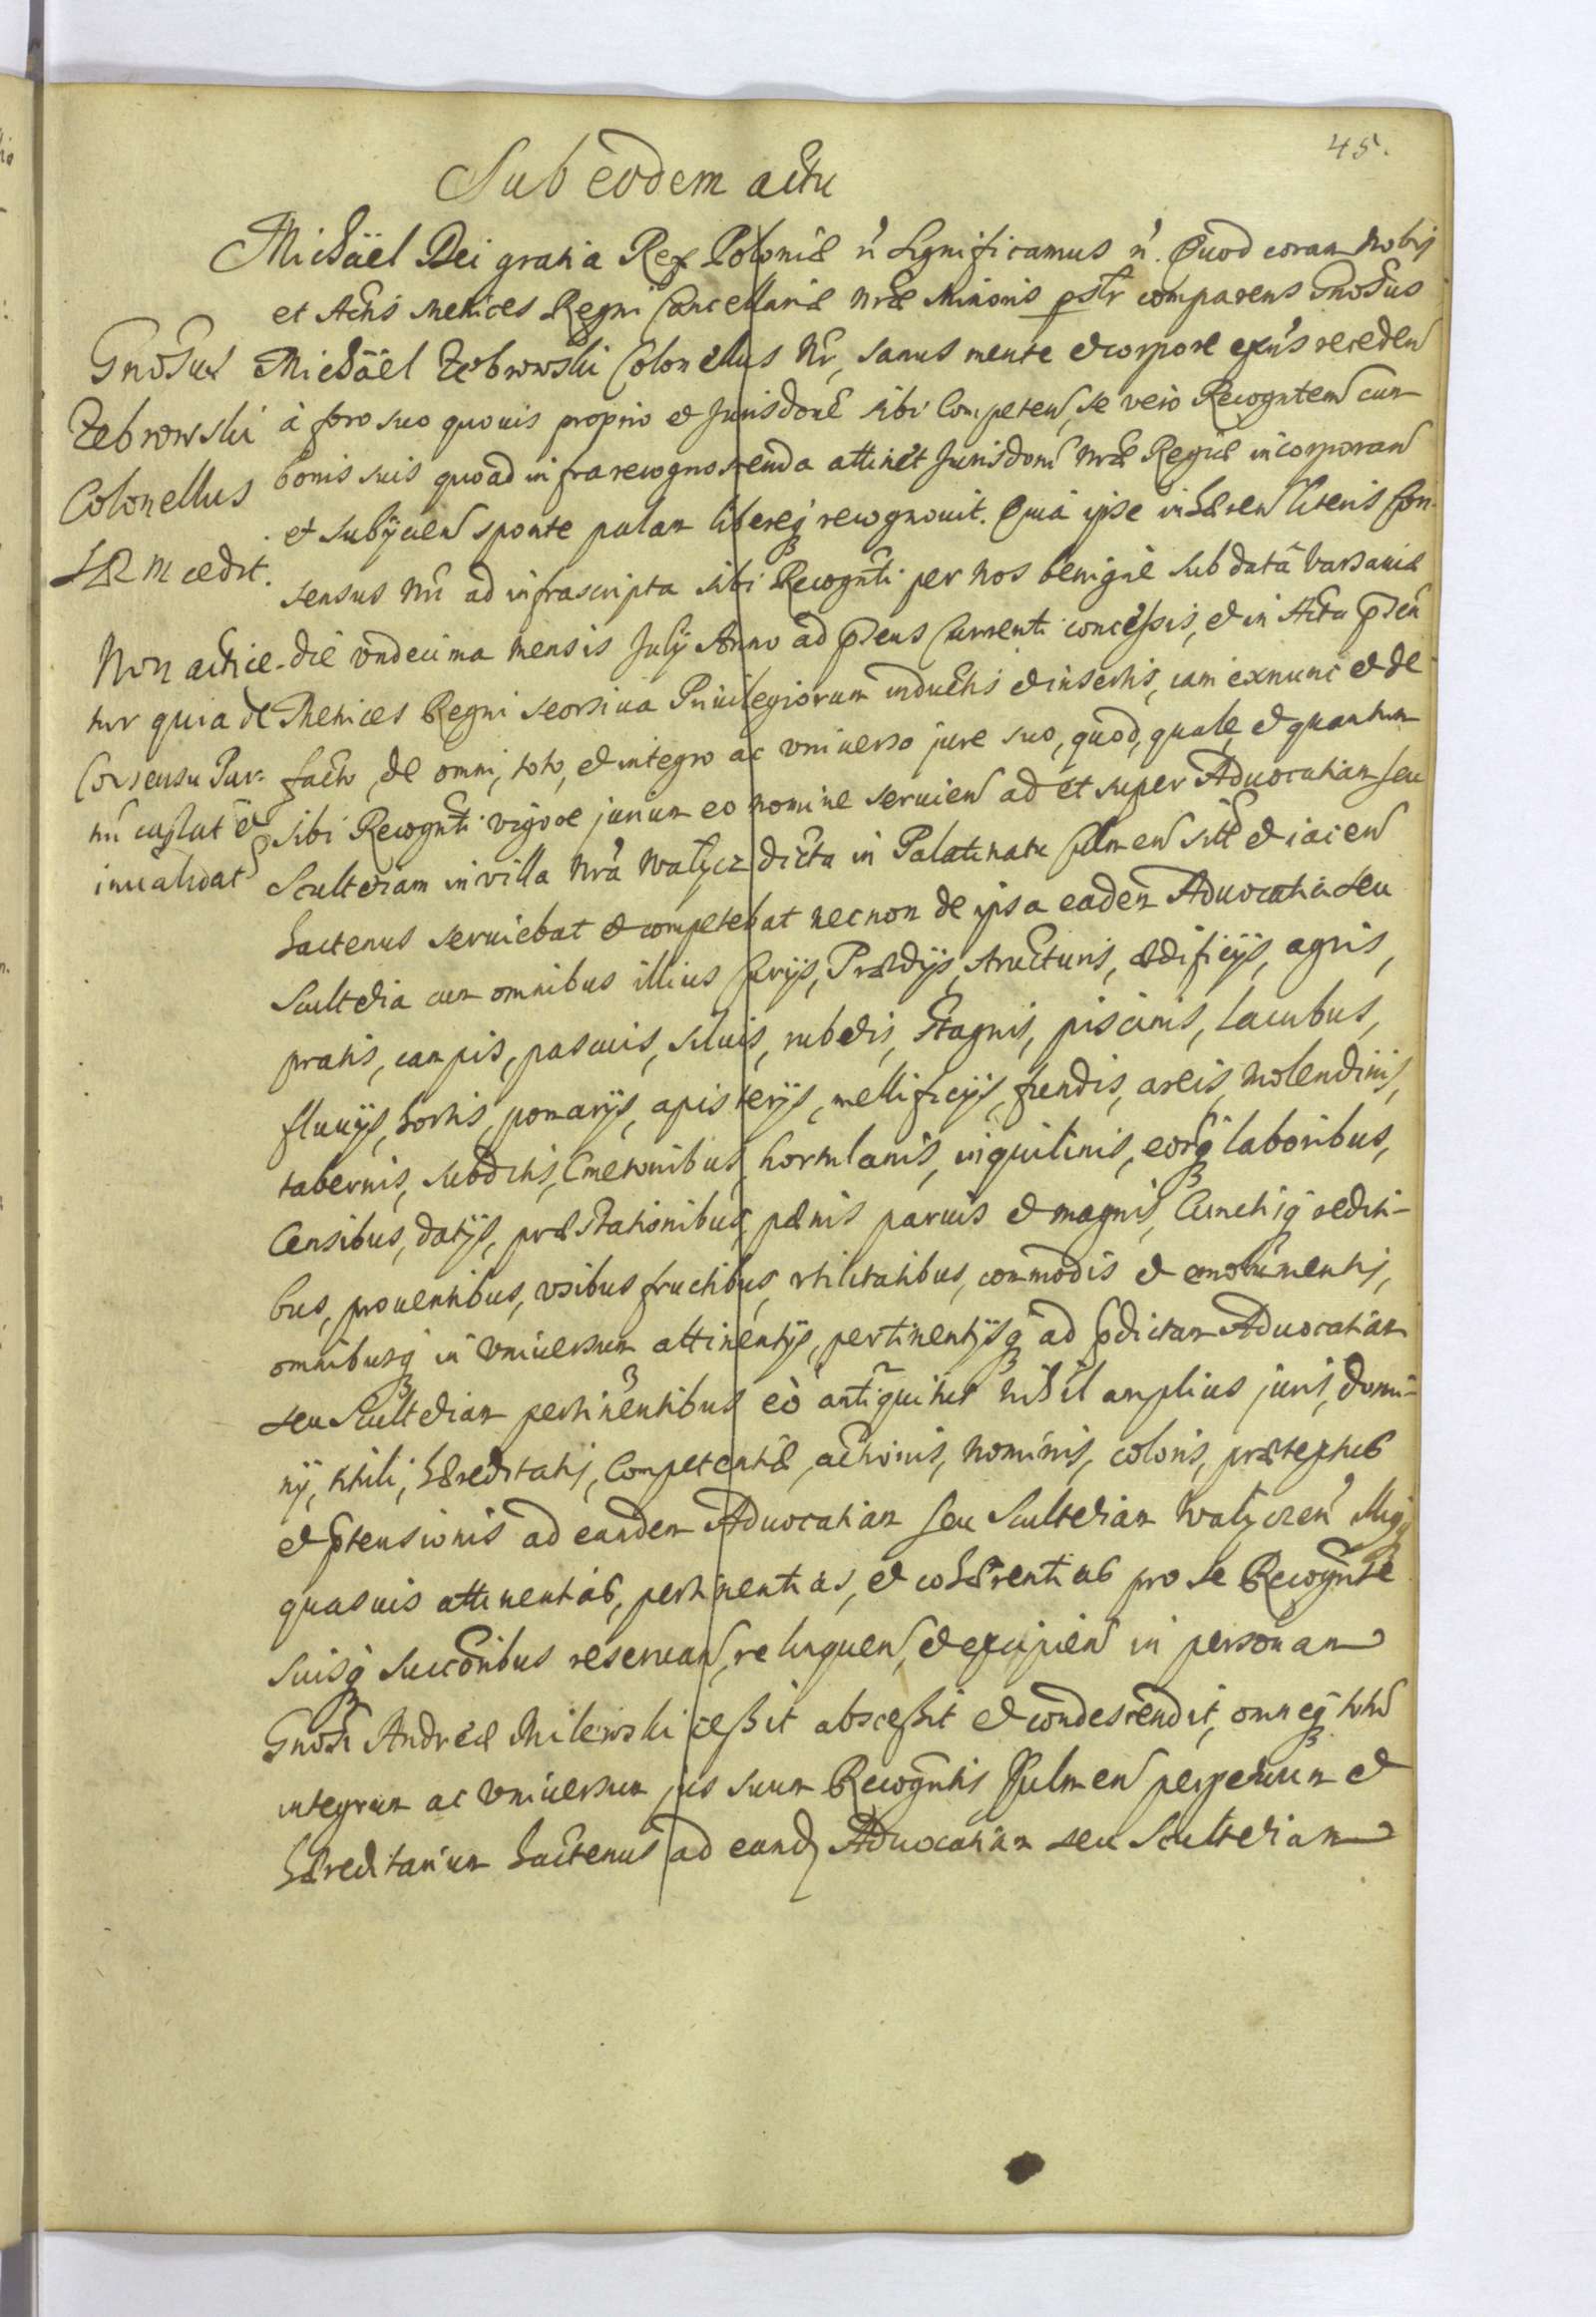 45.
Sub eodem actu
Michäel Dei gratia Rex Poloniæ etc Significamus etc. Quod coram Nobis
et Actis Metrices Regni Cancellariæ nræ Minoris pslr comparens Gnosus
Michäel Zebrowski Colonellus Nr, sanus mente et corpore exns receden
à foro suo quouis proprio et Jurisdone sibi Competen, se vero Recogntem cum
bonis suis quoad infrarecognoscenda attinet Jurisdoni nræ Regiæ incorporan
et subijcien sponte palam libereq recognouit. Quia ipse inhæren literis Con-
sensus Nri ad infrascripta sibi Recognti per nos benigne sub datâ Varsauiæ
die vndecima mensis July Anno ad præns Currenti concessis, et in Acta præn
Metrices Regni seorsiua Priuilegiorum inductis et insertis, iam exnunc et de
facto, de omni, toto, et integro ac vniuerso jure suo, quod, quale et quantum
sibi Recognti vigore jurium eo nomine seruien ad et super Aduocatiam seu
Scultetiam in villa Nra Walycz dicta in Palatinatu Culmen sitt et iacen
hactenus seruiebat et competebat necnon de ipsa eadem Aduocatia seu
Scultetia cum omnibus illius Curijs, Prædijs, structuris, ædificijs, agris,
pratis, campis, pascuis, siluis, rubetis, stagnis, piscinis, lacubus,
fluuijs, hortis, pomarijs, apisterijs, mellificijs, fundis, areis, molendinis,
tabernis, subditis, Cmetonibus, hortulanis, inquilinis, eorq laboribus,
Censibus, datijs, præstationibus, pænis paruis et magnis, Cunctisq rediti-
bus, prouentibus, vsibus fructibus, vtilitatibus, commodis et emolumentis,
omnibusq in vniuersum attinentijs, pertinentijsq ad prædictam Aduocatiam
seu Scultetiam pertinentibus eò antiquitus nihil amplius juris, domi-
nij, tituli, hæreditatis, Competentiæ, actionis, nominis, coloris, prætextus
et prætensionis ad eandem Aduocatiam seu Scultetiam Walyczen Illiq
quasuis attinentias, pertinentias, et cohærentias pro se Recognte
suisq succoribus reseruan, relinquen, et excipien in personam
Gnosi Andreæ Milewski cessit abscessit et condescendit, omneq totu
integrum ac vniuersum jus suum Recogntis Culmen perpetuum et
hæreditarium hactenus ad eand Aduocatiam seu Scultetiam
Gnosus
Zebrowski
Colonellus
cedit.
Non actice-
tur quia de
Consensu Par-
nri cassat et
inualidat